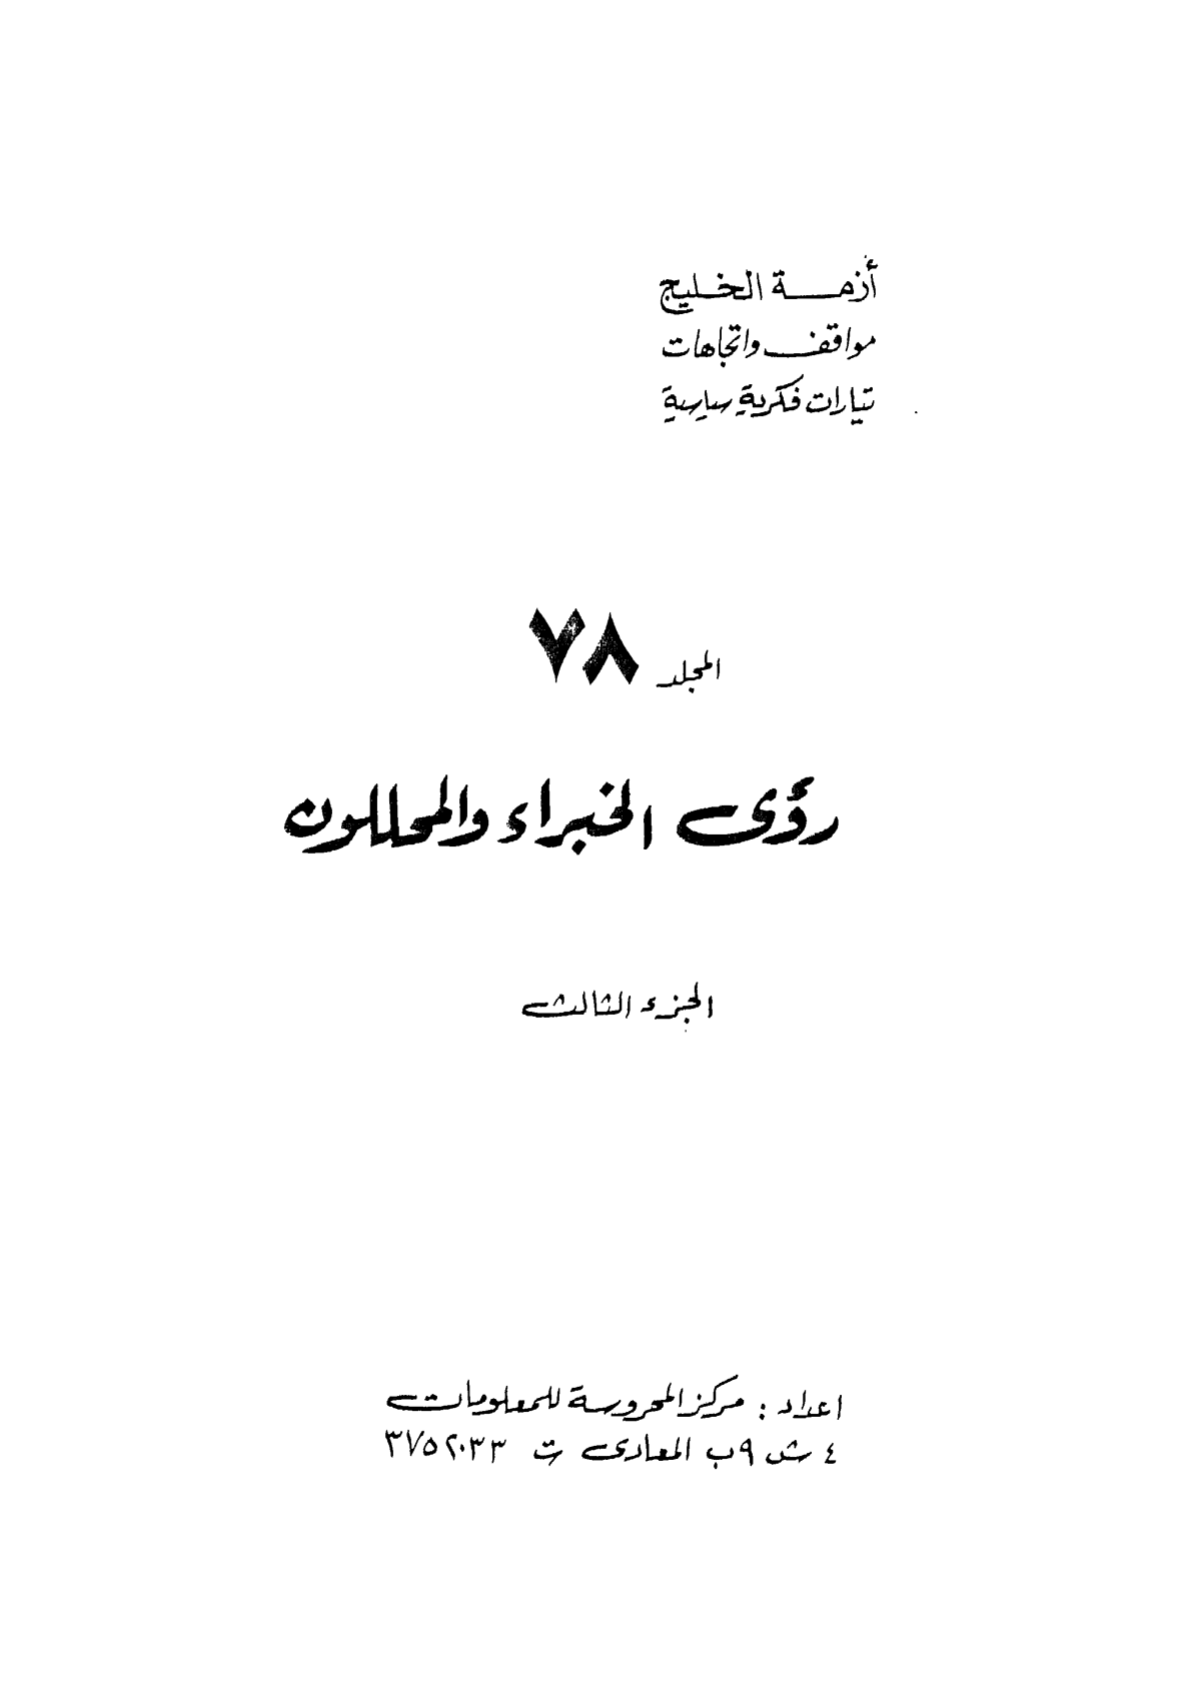 أزمة الخليج
مواقف واتجاهات
تيارات فكرية سياسية
المجلد ٧٨
رؤى الخبراء والمحللون
الجزء الثالث
اعداد : مركز المحروسة للمعلومات
٤ ش ٩ب المعادى ت ٣٧٥٢٠٣٣